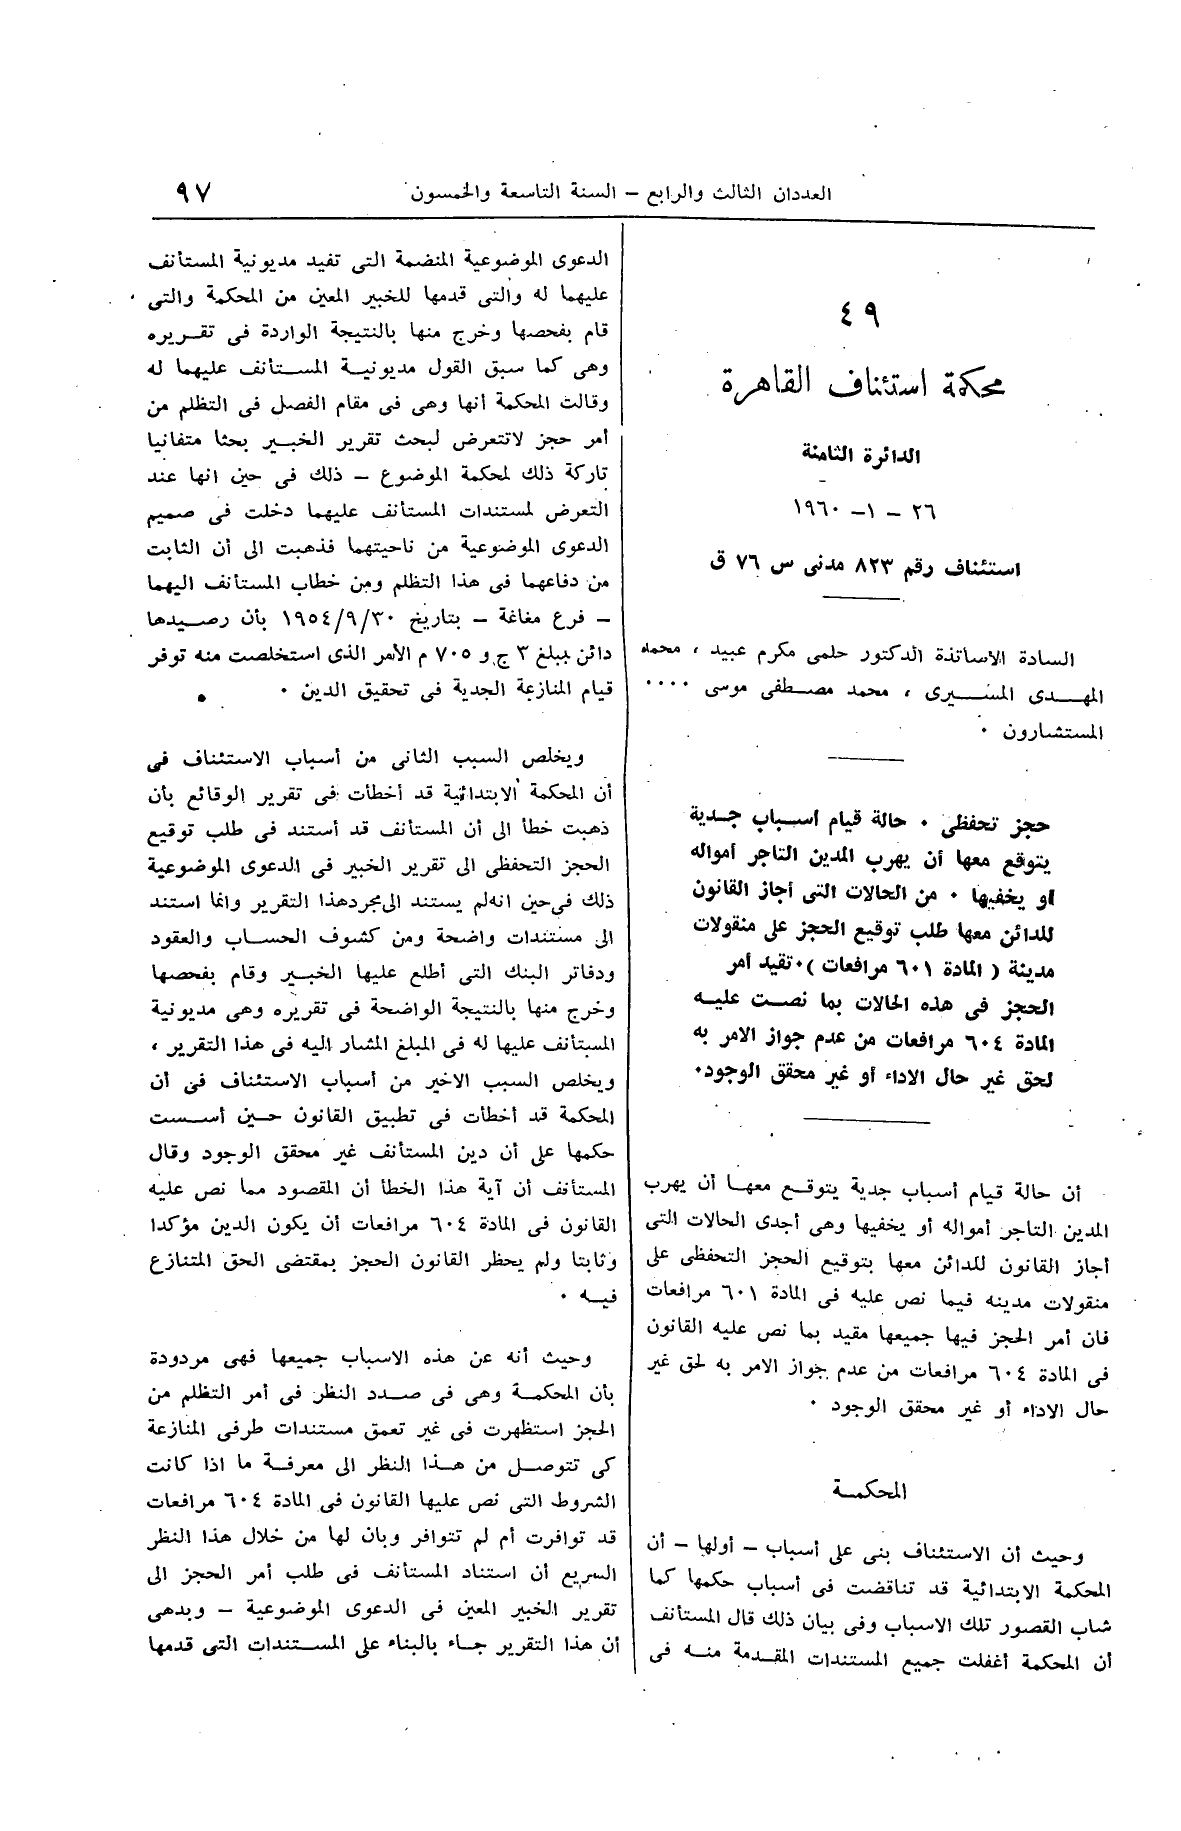 العددان الثالث والرابع – السنة التاسعة والخمسون
٩٧
٤٩
محكمة استئناف القاهرة
الدائرة الثامنة
٢٦ – ١ – ١٩٦٠
استئناف رقم ٨٢٣ مدنى س ٧٦ ق
السادة الاساتذة الدكتور حلمى مكرم عبيد ، محمد
المهـدى المسيرى ، محمد مصطفى موسى ....
المستشارون .
حجز تحفظى . حالة قيام أسباب جدية
يتوقع معها أن يهرب المدين التاجر أمواله
أو يخفيها . من الحالات التى أجاز القانون
للدائن معها طلب توقيع الحجز على منقولات
مدينة ( المادة ٦٠١ مرافعات ) . تقيد أمر
الحجز فى هذه الحالات بما نصت عليه
المادة ٦٠٤ مرافعات من عدم جواز الامر به
لحق غير حال الاداء أو غير محقق الوجود .
أن حالة قيام أسباب جدية يتوقع معها أن يهرب
المدين التاجر أمواله أو يخفيها وهى أجدى الحالات التى
أجاز القانون للدائن معها بتوقيع الحجز التحفظى على
منقولات مدينه فيما نص عليه فى المادة ٦٠١ مرافعات
فان أمر الحجز فيها جميعها مقيد بما نص عليه القانون
فى المادة ٦٠٤ مرافعات من عدم جواز الامر به لحق غير
حال الاداء أو غير محقق الوجود .
المحكمة
وحيث أن الاستئناف بنى على أسباب – أولها – أن
المحكمة الابتدائية قد تناقضت فى أسباب حكمها كما
شاب القصور تلك الاسباب وفى بيان ذلك قال المستأنف
أن المحكمة أغفلت جميع المستندات المقدمة منه فى
الدعوى الموضوعية المنضمة التى تفيد مديونية المستأنف
عليهما له والتى قدمها للخبير المعين من المحكمة والتى
قام بفحصها وخرج منها بالنتيجة الواردة فى تقريره
وهى كما سبق القول مديونية المستأنف عليهما له
وقالت المحكمة أنها وهى فى مقام الفصل فى التظلم من
أمر حجز لاتتعرض لبحث تقرير الخبير بحثا متفانيا
تاركة ذلك لمحكمة الموضوع – ذلك فى حين انها عند
التعرض لمستندات المستأنف عليهما دخلت فى صميم
الدعوى الموضوعية من ناحيتهما فذهبت الى أن الثابت
من دفاعهما فى هذا التظلم ومن خطاب المستأنف اليهما
– فرع مغاغة – بتاريخ ١٩٥٤/٩/٣٠ بأن رصيدها
دائن بمبلغ ٣ ج و ٧٠٥ م الأمر الذى استخلصت منه توفر
قيام المنازعة الجدية فى تحقيق الدين .
ويخلص السبب الثانى من أسباب الاستئناف فى
أن المحكمة الابتدائية قد أخطأت فى تقرير الوقائع بأن
ذهبت خطأ الى أن المستأنف قد أستند فى طلب توقيع
الحجز التحفظى الى تقرير الخبير فى الدعوى الموضوعية
ذلك فى حين انه لم يستند الى مجرد هذا التقرير وانما استند
الى مستندات واضحة ومن كشوف الحساب والعقود
ودفاتر البنك التى أطلع عليها الخبير وقام بفحصها
وخرج منها بالنتيجة الواضحة فى تقريره وهى مديونية
المستأنف عليها له فى المبلغ المشار اليه فى هذا التقرير ،
ويخلص السبب الاخير من أسباب الاستئناف فى أن
المحكمة قد أخطأت فى تطبيق القانون حين أسست
حكمها على أن دين المستأنف غير محقق الوجود وقال
المستأنف أن آية هذا الخطأ أن المقصود مما نص عليه
القانون فى المادة ٦٠٤ مرافعات أن يكون الدين مؤكدا
وثابتا ولم يحظر القانون الحجز بمقتضى الحق المتنازع
فيه .
وحيث أنه عن هذه الاسباب جميعها فهى مردودة
بأن المحكمة وهى فى صدد النظر فى أمر التظلم من
الحجز استظهرت فى غير تعمق مستندات طرفى المنازعة
كى تتوصل من هذا النظر الى معرفة ما اذا كانت
الشروط التى نص عليها القانون فى المادة ٦٠٤ مرافعات
قد توافرت أم لم تتوافر وبان لها من خلال هذا النظر
السريع أن استناد المستأنف فى طلب أمر الحجز الى
تقرير الخبير المعين فى الدعوى الموضوعية – وبدهى
أن هذا التقرير جاء بالبناء على المستندات التى قدمها